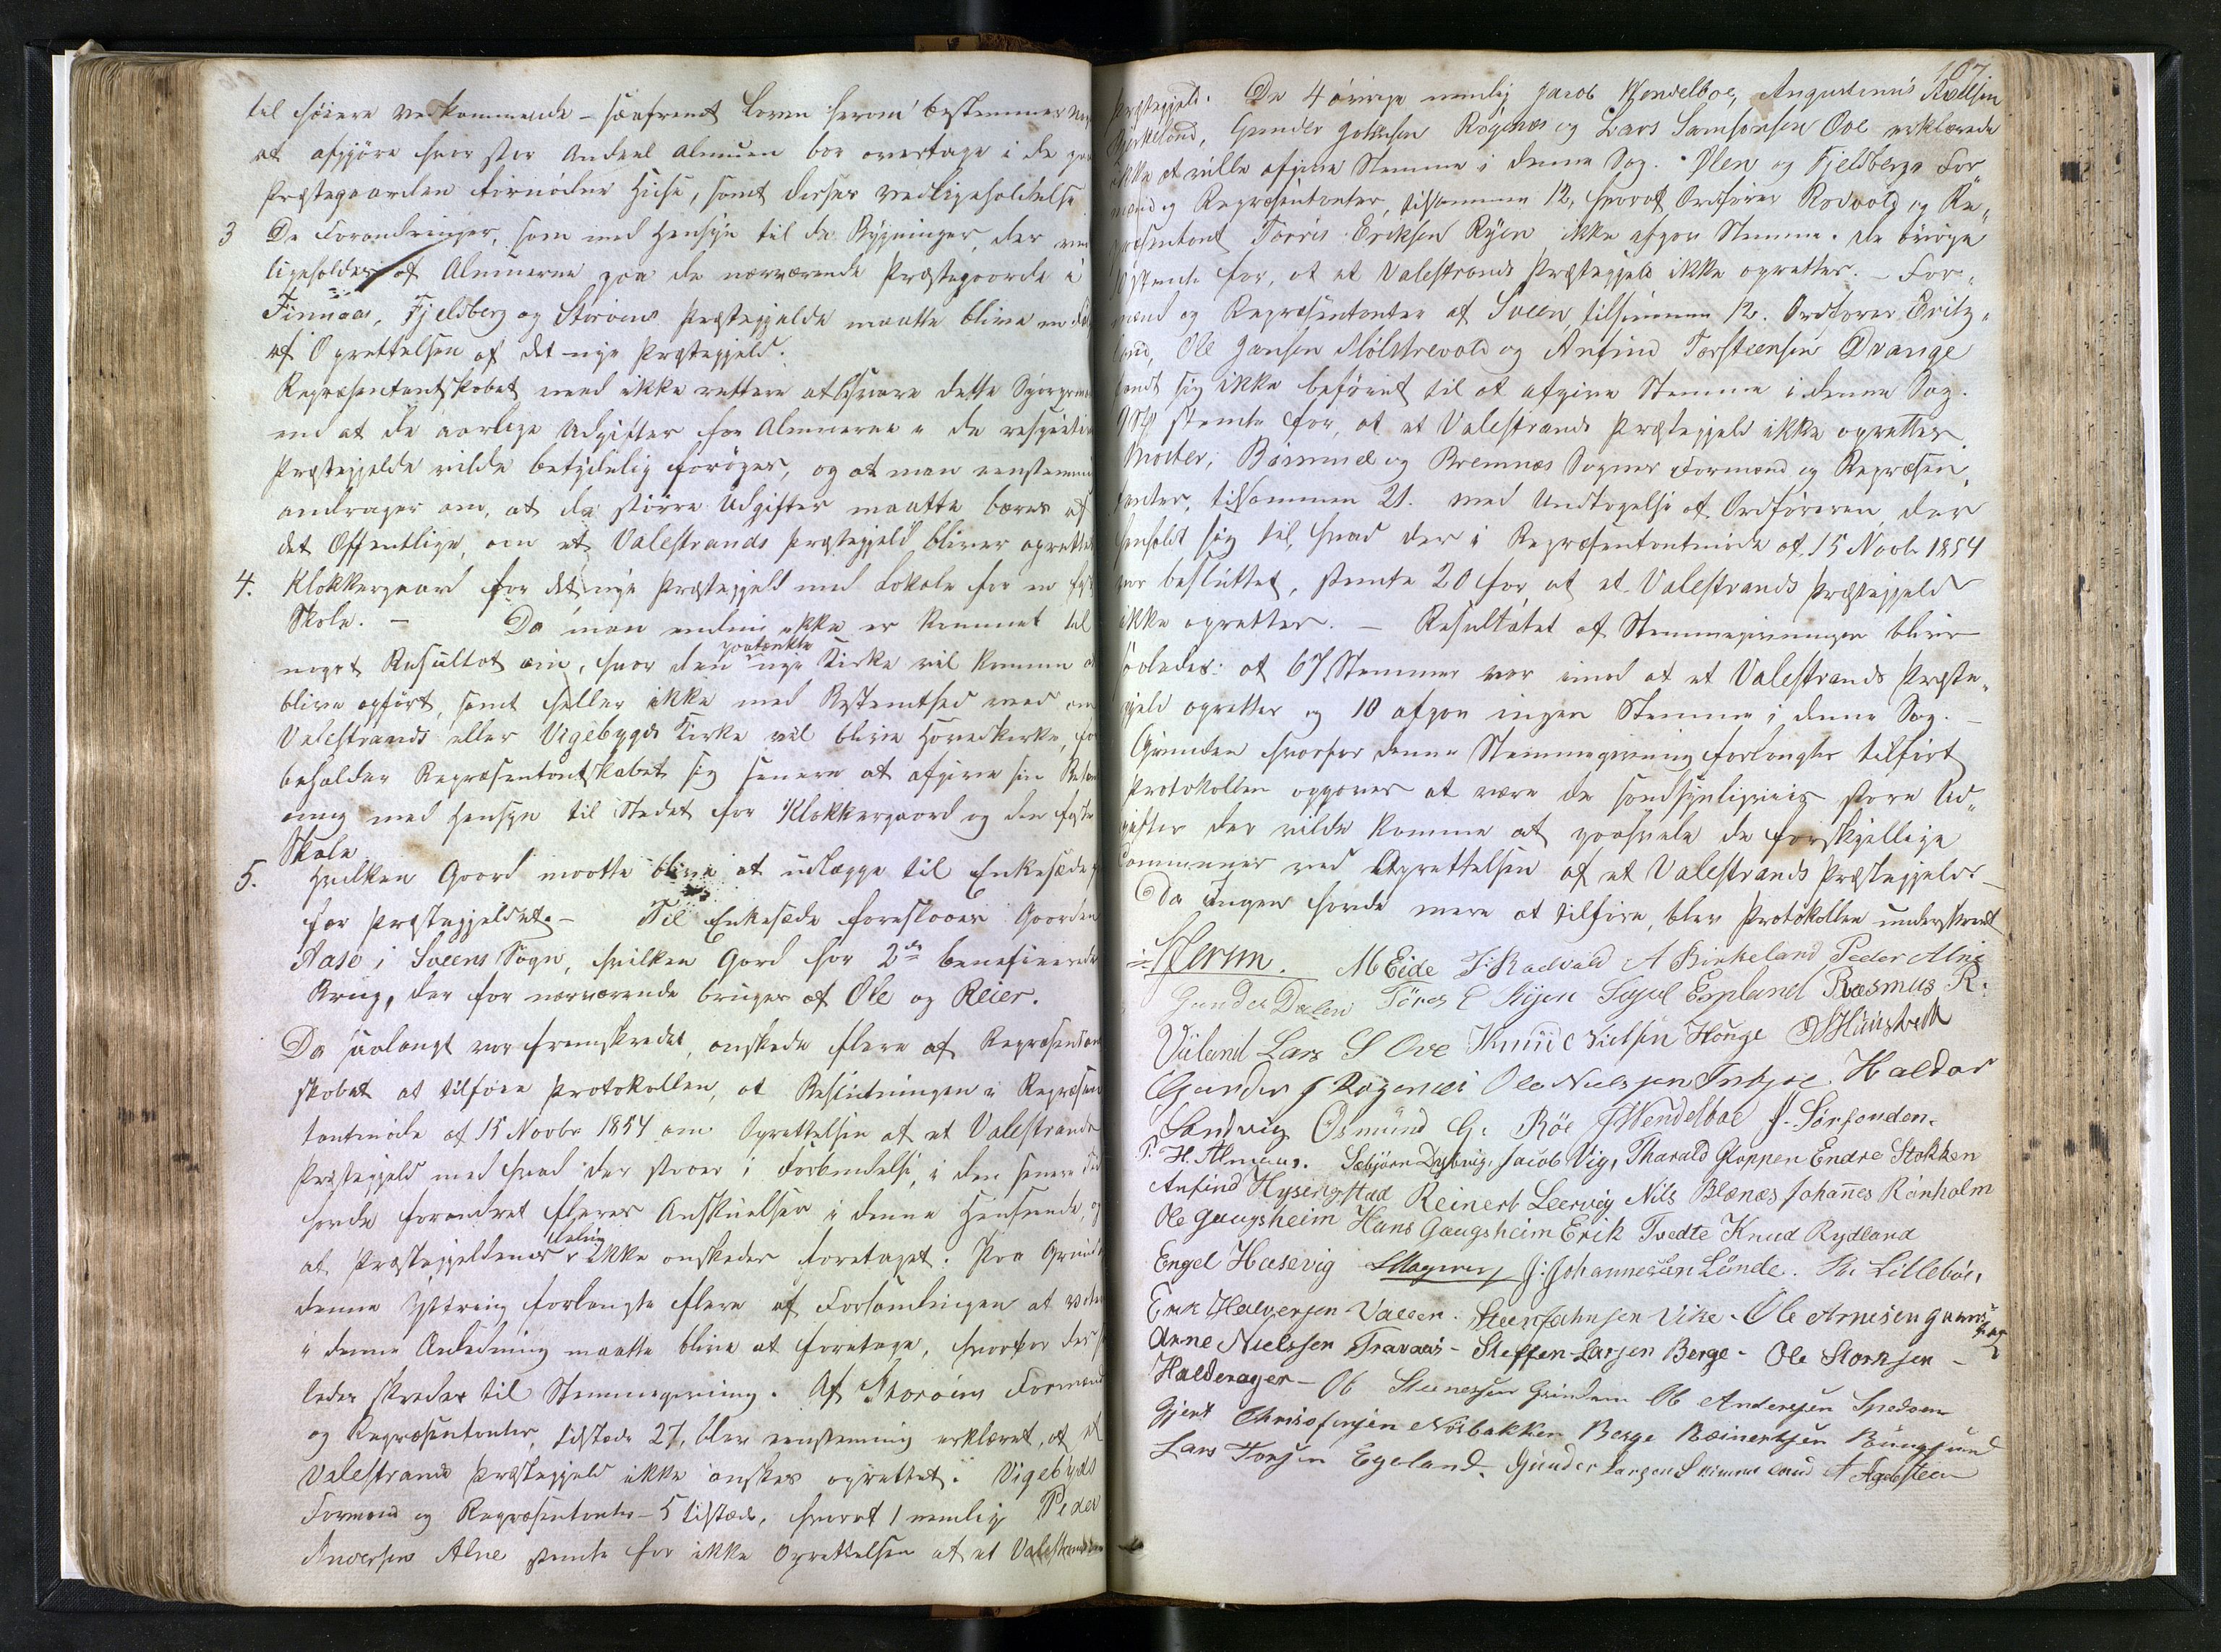 til høiere Vedkommende – saafremt Loven herom bestemmer
at afgjöre hvor stor Andeel Almuen bør overtage i de paa
Præstegaarden fornødne Huse, samt disses Vedligeholdelse
3 De Forandringer, som med Hensyn til de Bygninger, der ved
ligeholdes af Almuerne paa de nærværende Præstegaarde i
Finnaas, Fjeldberg og Storöens Præstegjelde maatte blive en Følge
af Oprettelsen af det nye Præstegjeld.
Repræsentantskabet veed ikke rettere at besvare dette Spörgsmaal
end at de aarlige Udgifter for Almuerne i de respective
Præstegjelde vilde betydelig foröges, og at man eenstemmig
andrager om, at de større Udgifter maatte bæres af
det Offentlige, om et Valestrands Præstegjeld bliver oprettet
4. Klokkergaard for det nye Præstegjeld med Lokale for en fast
Skole. – Da man endnu ikke er kommet til
noget Resultat om, hvor den paatænkte nye Kirke vil komme at
blive opfört, samt heller ikke med Bestemthed veed om
Valestrands eller Vigebygds Kirke vil blive Hovedkirke, for
beholder Repræsentantskabet sig senere at afgive sin
ning med Hensyn til Stedet for Klokkergaard og den faste
Skole
5. Hvilken Gaard maatte blive at udlægge til Enkesæde
for Præstegjeldet. – Til Enkesæde foreslaaes Gaarden
Aase i Sveens Sogn, hvilken Gard har 2de beneficerede
Brug, der for nærværende bruges af Ole og Reier.
Da saalangt var fremskredet, önskede flere af Repræsentant
skabet at tilföre Protokollen, at Beslutningen i Repræsen
tantmöde af 15 Novbr 1854 om Oprettelsen af et Valestrands
Præstegjeld med hvad der staar i Forbindelse, i den senere Tid
havde forandret fleres Anskuelser i denne Henseende, og
at Præstegjeldenes deling ikke önskedes foretaget. Paa Grund
denne Yttring forlangte flere af Forsamlingen at
i denne Anledning maatte blive at foretage, hvorfor der
ledes skredes til Stemmegivning. Af Storöens Formænd
og Repræsentanter, tilstede 27, blev eenstemmig erklæret, at et
Valestrands Præstegjeld ikke önskes oprettet. Vigebygds
Formænd og Repræsentanter – 5 tilstede, hvoraf 1 nemlig Peder
Andersen Alne stemte for ikke Oprettelsen af et Valestrands
107
Præstegjeld. De 4 övrige nemlig Jacob Wendelboe, Augustinus Roelsen
Birkeland, Gunder Rögenæs og Lars Samsonsen Ove erklærede
ikke at ville afgive Stemme i denne Sag. Ølen og Fjeldbergs For„
mænd og Repræsentanter, tilsammen 12, hvoraf Ordförer Rödvold og Re„
præsentant Törris Eriksen Ryen ikke afgav Stemme. De övrige
10 stemte for, at et Valestrands Præstegjeld ikke oprettes. – For„
mænd og Repræsentanter af Sveen, tilsammen 12. Ordförer
Ole Jansen Mölstrevold og Anfind Torsteensen Drange
fandt sig ikke beföiet til at afgive Stemme i denne Sag.
stemte for, at et Valestrands Præstegjeld ikke oprettes.
Moster, Bömmel og Bremnæs Sognes Formænd og Repræsen„
tanter, tilsammen 21. med Undtagelse af Ordföreren, der
henholdt sig til, hvad der i Repræsentantmöde af 15 Novbr 1854
var besluttet, stemte 20 for at et Valestrands Præstegjeld
ikke oprettes. – Resultatet af Stemmegivningen blev
saaledes: at 67 Stemmer var imod at et Valestrands Præste„
gjeld oprettes og 10 afgav ingen Stemme i denne Sag. –
Grunden hvorfor denne Stemmegivning forlanges tilfört
Protokollen opgaves at være de sandsynligviis store Ud„
gifter der vilde komme at paahvile de forskjellige
Communer ved Oprettelsen af et Valestrands Præstegjeld. –
Da Ingen havde mere at tilföre, blev Protokollen underskrevet
M Eide Rödvold A Birkeland Peder Alne
Gunder Dalen Törres E Ryen Espland Rasmus R.
Viland Lars S Ove Knud Nielsen Houge
Gunder J Rögenæs Ole Nielssen Haldor
Sandvig Osmund G. Röe J Wendelboe J. Sørfonden.
P. H. Almaas. Sæbjörn Dybvig, Jacob Vig, Tharald Gloppen Endre Stokken
Anfind Hysingstad Reinert Leervig Nils Blænæs Johannes Rønholm
Ole Gaugsheim Hans Gaugsheim Erik Tvedte Knud Rydland
Engel Hæsevig J: Johannessen Lunde. Lillebøe,
Erik Halversen Valeer. Steen Johnsen Vike. Ole Arnesen
Arne Nielssen Travaas – Steffen Larsen Berge – Ole Storksen –
Halderager – Ob Steenessen Grindem Ob Anderssen
Gjert Chrisofersen Nordbakken Berge Reinertsen
Lars Torsen Egeland. Gunder Larsen A Ageesteen